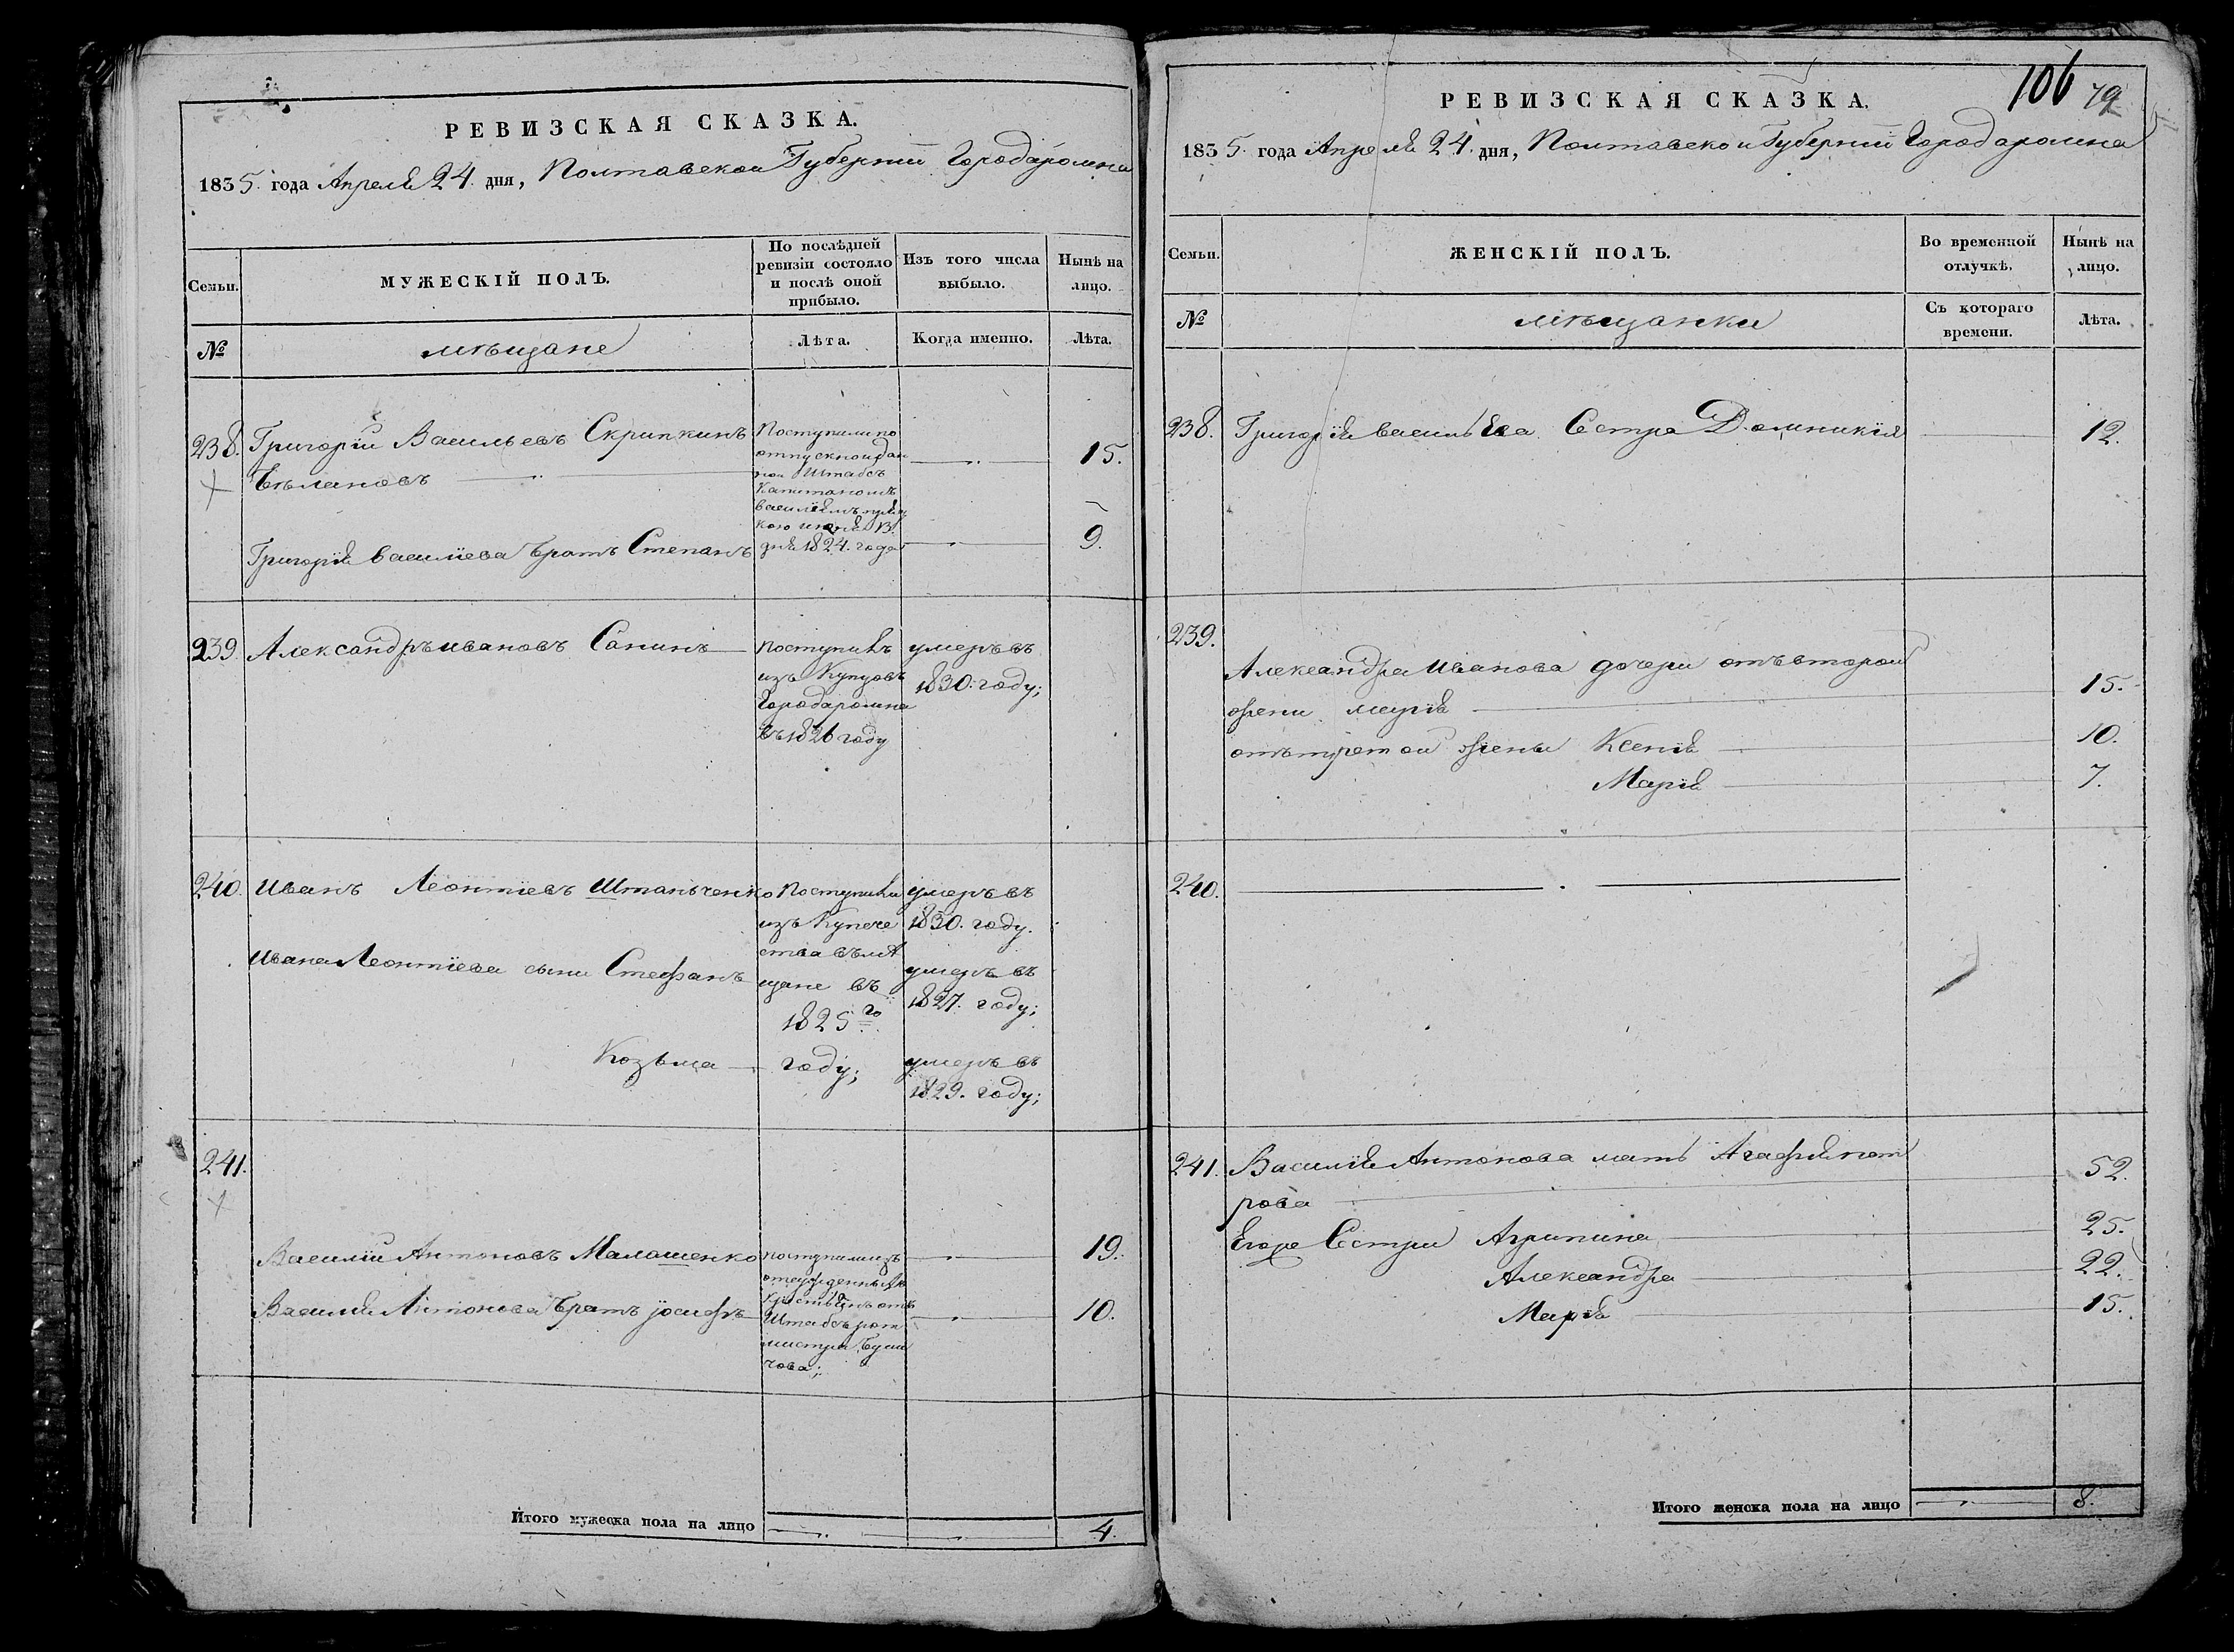 РЕВИЗСКАЯ СКАЗКА.
1835. года Апреля 24. дня, Полтавской Губернии Города ромна
Семьи.
МУЖЕСКІЙ ПОЛЪ.
По послѣдней ревизіи состояло и послѣ оной прибыло.
Изъ того числа выбыло.
Нынѣ на лицо.
№
мѣщане
Лѣта.
Когда именно.
Лѣта.
238. Григорій Васильевъ Скрипкинъ
Бѣлановъ
Поступили по
отпускной дан
ной Штабсъ
Капитаномъ
Василіемъ
13
дня 1824. года
15.
Григорія василіева братъ Степанъ
9.
239. Александръ ивановъ Санинъ
поступилъ
изъ Купцовъ
Города ромна
въ 1826 году
умеръ въ
1830. году;
240. Иванъ Леонтіевъ Штаньченко
Поступили
изъ Купече
ства въ мѣ
щане въ
1825го
году;
умеръ въ
1830. году.
Ивана Леонтіева сыни Стефанъ
умеръ въ
1827. году;
Козьма
умеръ въ
1829. году;
241.
Василій Антоновъ Малашенко
поступили изъ
отсужденныхъ
Крестьянъ отъ
Штабсъ рот
мистра
19.
Василія Антонова братъ іосифъ
10.
Итого мужеска пола на лицо
4.
106
79
РЕВИЗСКАЯ СКАЗКА.
1835. года Апреля 24. дня, Полтавской Губернии Города ромна
Семьи.
ЖЕНСКІЙ ПОЛЪ.
Во временной отлучкѣ.
Нынѣ на лицо.
№
мѣщанки
Съ котораго времени.
Лѣта.
238. Григорія васильева Сестра Домникія 12.
239.
Александра Иванова дочери отъ второй
жени марія 15.
отъ третой жены Ксенія 10.
Марія 7.
240.
241. Василія Антонова мать Агафія пет
рова 52.
Егоже Сестри Агрипина 25.
Александра 22.
Марія 15.
Итого женска пола на лицо
8.